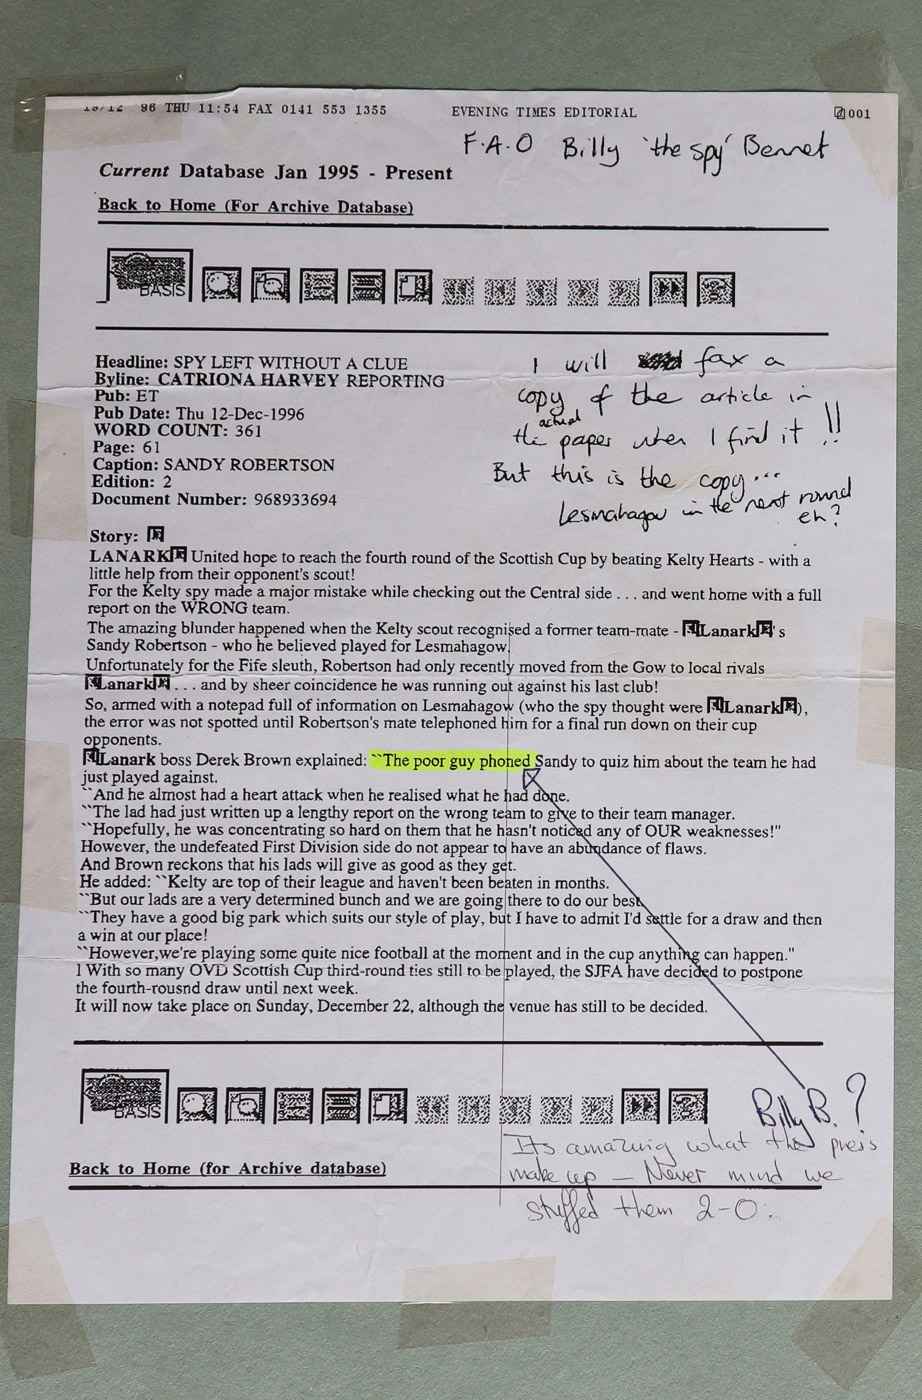 19/12 '96 THU 11:54 FAX 0141 553 1355 EVENING TIMES EDITORIAL 001
F.A.O Billy 'the spy' Bennet
Current Database Jan 1995 - Present
Back to Home (For Archive Database)
BASIS
Headline: SPY LEFT WITHOUT A CLUE
Byline: CATRIONA HARVEY REPORTING
Pub: ET
Pub Date: Thu 12-Dec-1996
WORD COUNT: 361
Page: 61
Caption: SANDY ROBERTSON
Edition: 2
Document Number: 968933694
I will fax a
copy of the article in
the actual paper when I find it !!
But this is the copy...
Lesmahagow in the next round
eh?
Story:
LANARK United hope to reach the fourth round of the Scottish Cup by beating Kelty Hearts - with a
little help from their opponent's scout!
For the Kelty spy made a major mistake while checking out the Central side . . . and went home with a full
report on the WRONG team.
The amazing blunder happened when the Kelty scout recognised a former team-mate - Lanark's
Sandy Robertson - who he believed played for Lesmahagow.
Unfortunately for the Fife sleuth, Robertson had only recently moved from the Gow to local rivals
Lanark . . . and by sheer coincidence he was running out against his last club!
So, armed with a notepad full of information on Lesmahagow (who the spy thought were Lanark),
the error was not spotted until Robertson's mate telephoned him for a final run down on their cup
opponents.
Lanark boss Derek Brown explained: ``The poor guy phoned Sandy to quiz him about the team he had
just played against.
``And he almost had a heart attack when he realised what he had done.
``The lad had just written up a lengthy report on the wrong team to give to their team manager.
``Hopefully, he was concentrating so hard on them that he hasn't noticed any of OUR weaknesses!"
However, the undefeated First Division side do not appear to have an abundance of flaws.
And Brown reckons that his lads will give as good as they get.
He added: ``Kelty are top of their league and haven't been beaten in months.
``But our lads are a very determined bunch and we are going there to do our best.
``They have a good big park which suits our style of play, but I have to admit I'd settle for a draw and then
a win at our place!
``However,we're playing some quite nice football at the moment and in the cup anything can happen."
l With so many OVD Scottish Cup third-round ties still to be played, the SJFA have decided to postpone
the fourth-rousnd draw until next week.
It will now take place on Sunday, December 22, although the venue has still to be decided.
BASIS
Billy B. ?
Its amazing what the press
make up — Never mind we
stuffed them 2-0.
Back to Home (for Archive database)